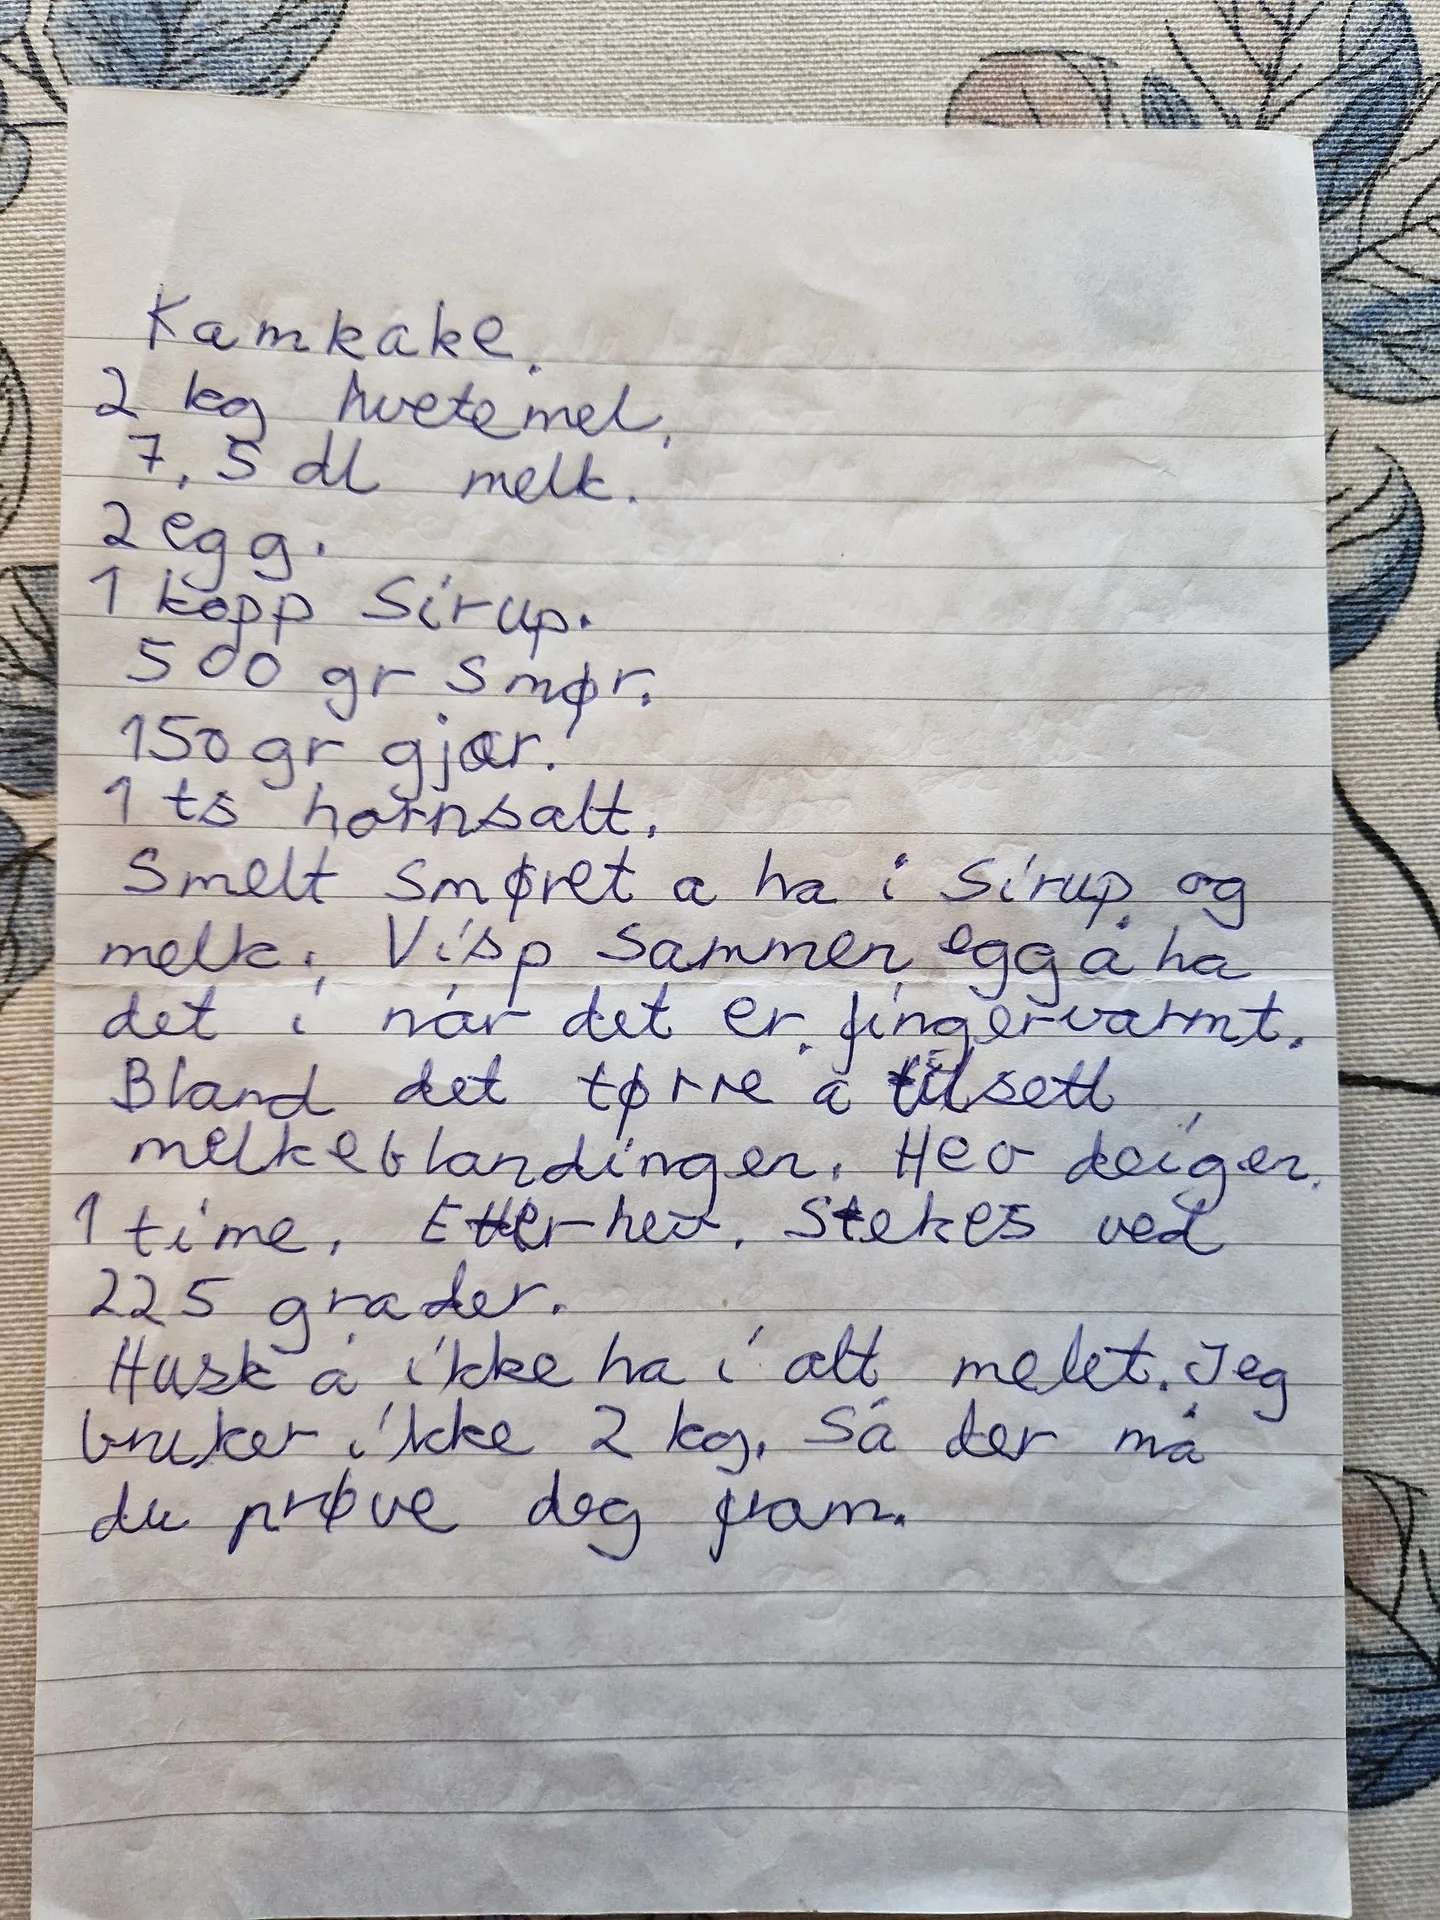 Kamkake.
2 kg hvetemel.
7,5 dl melk.
2 egg.
1 kopp sirup.
500 gr smør.
150 gr gjær.
1 ts hornsalt.
Smelt smøret a ha i sirup og
melk. Visp sammen egg å ha
det i når det er fingervarmt.
Bland det tørre å tilsett
melkeblandingen. Hev deigen
1 time. Etterhev. Stekes ved
225 grader.
Husk å ikke ha i alt melet. Jeg
bruker ikke 2 kg. Så der må
du prøve deg fram.